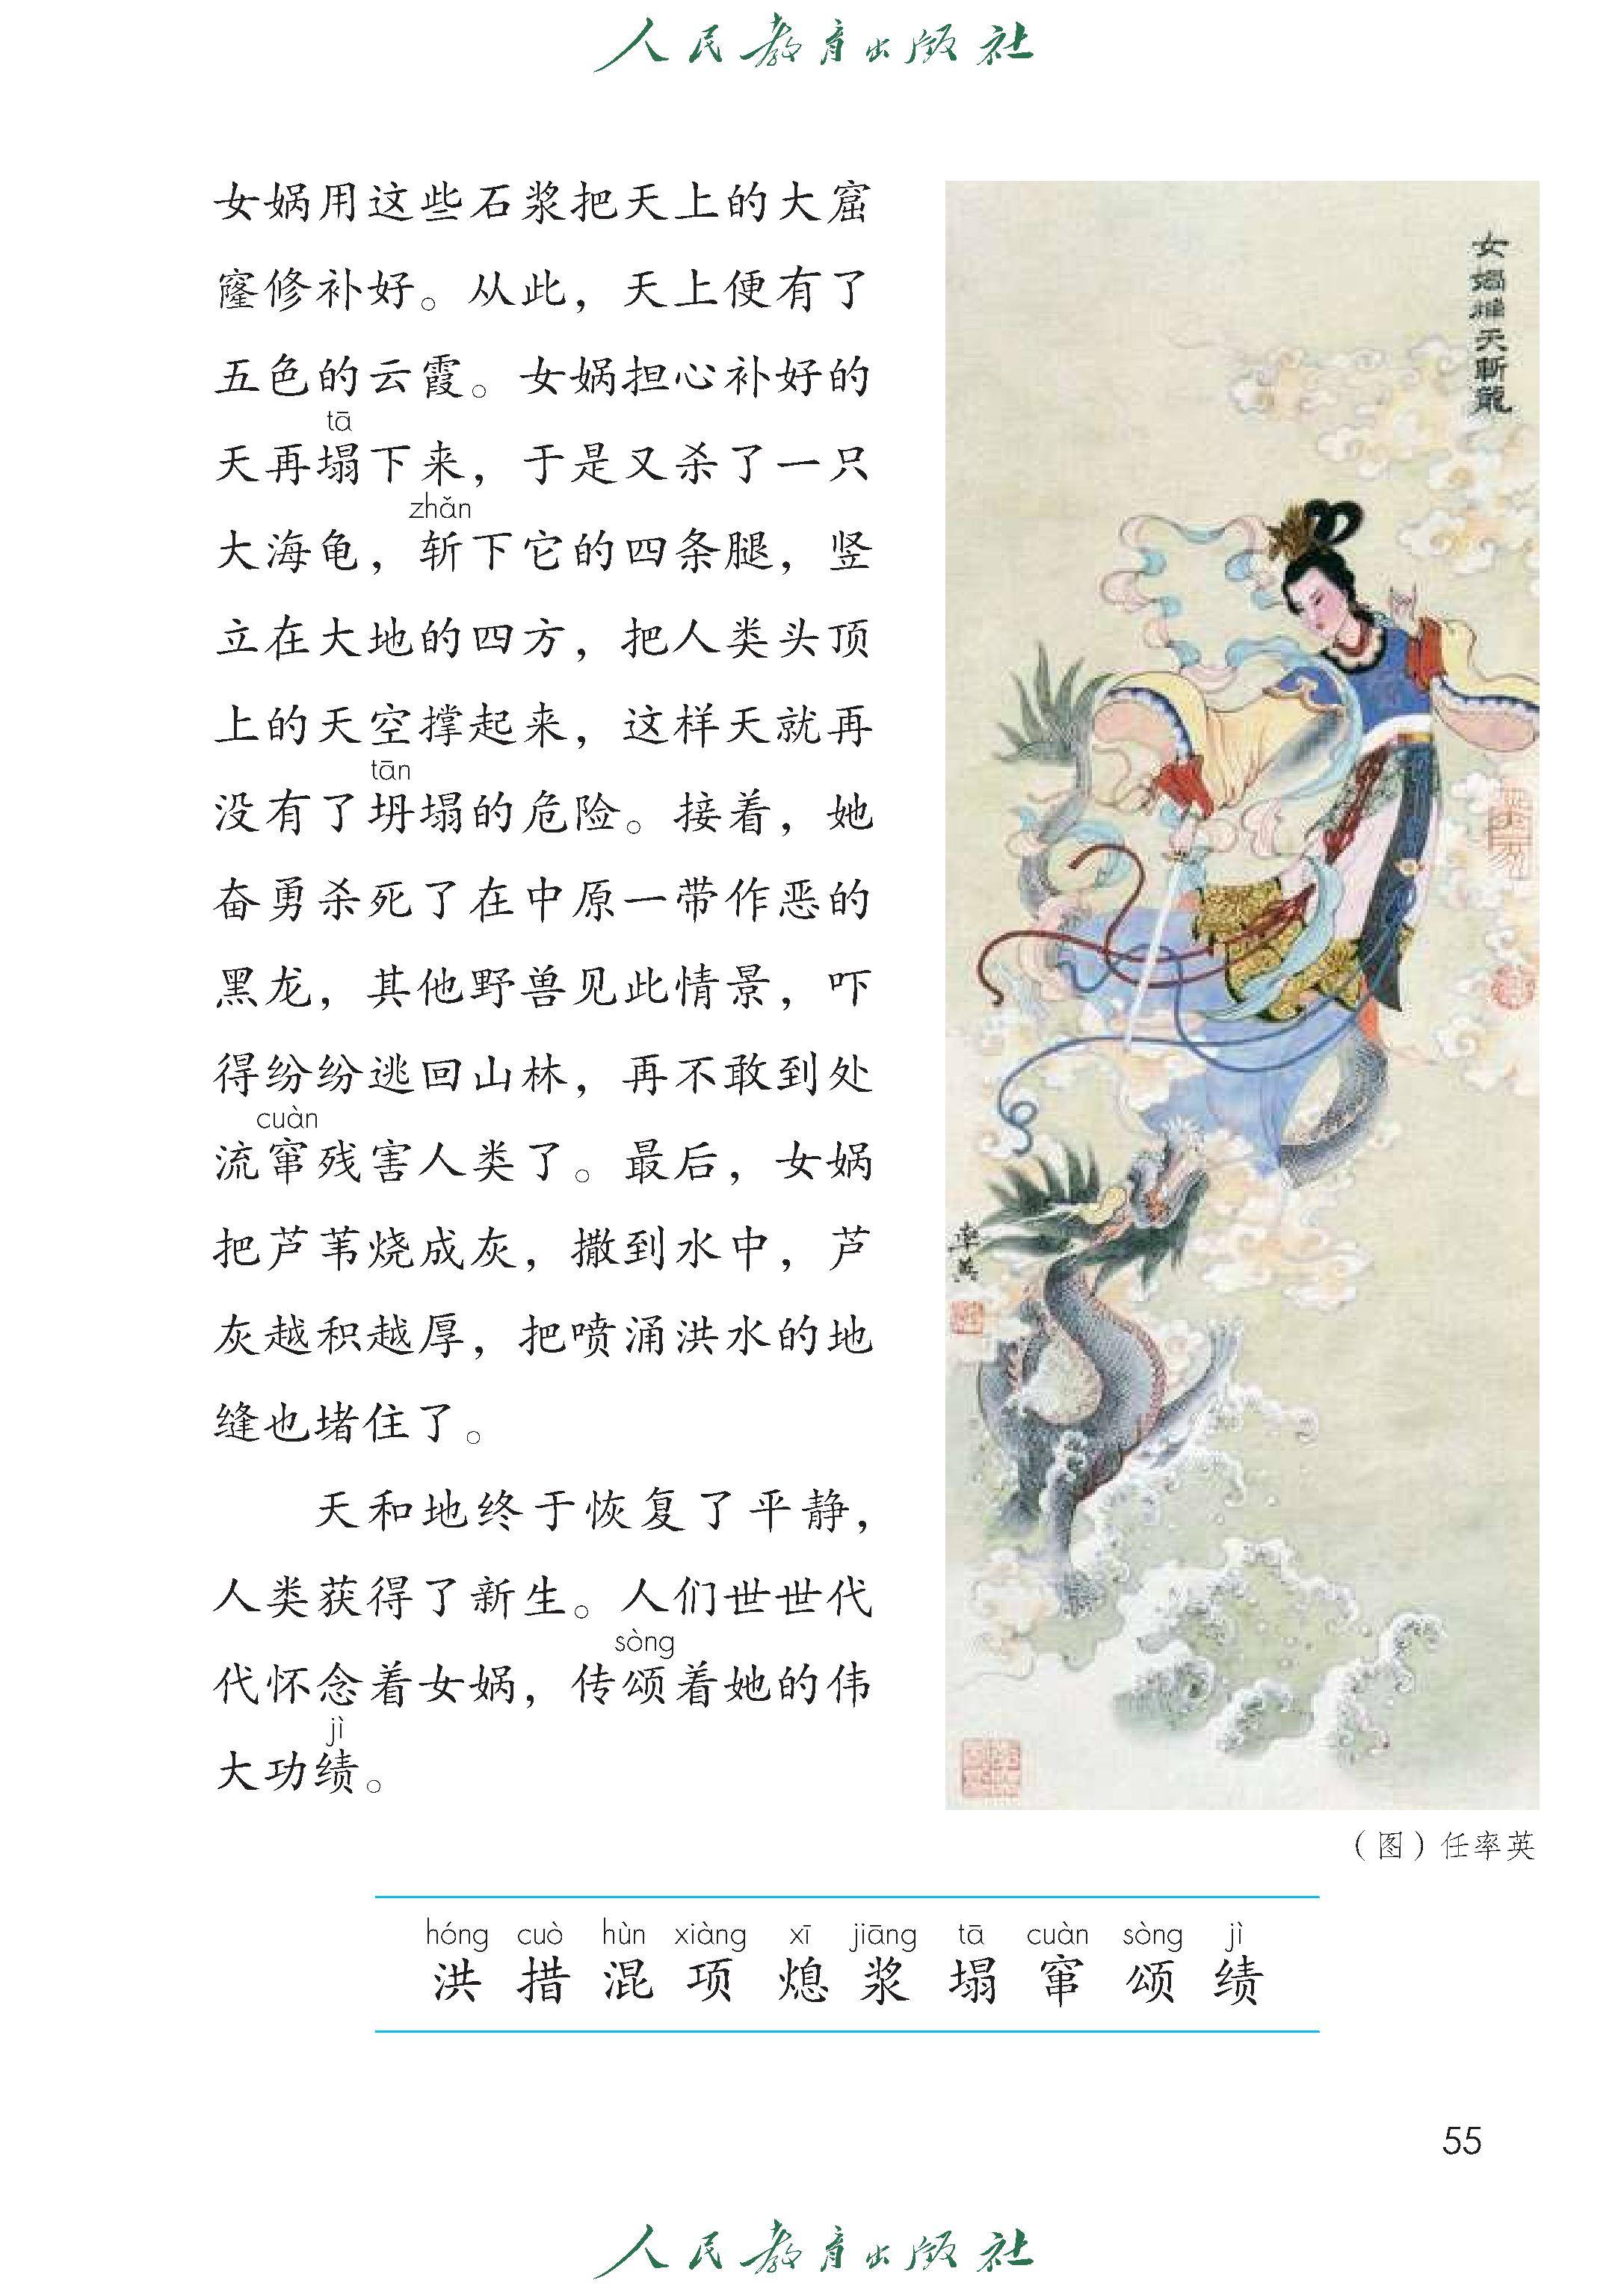 人民教育出版社
女娲用这些石浆把天上的大窟
窿修补好。从此，天上便有了
五色的云霞。女娲担心补好的
tā
天再塌下来，于是又杀了一只
zhǎn
大海龟，斩下它的四条腿，竖
立在大地的四方，把人类头顶
上的天空撑起来，这样天就再
tān
没有了坍塌的危险。接着，她
奋勇杀死了在中原一带作恶的
黑龙，其他野兽见此情景，吓
得纷纷逃回山林，再不敢到处
cuàn
流窜残害人类了。最后，女娲
把芦苇烧成灰，撒到水中，芦
灰越积越厚，把喷涌洪水的地
缝也堵住了。
天和地终于恢复了平静，
人类获得了新生。人们世世代
sòng
代怀念着女娲，传颂着她的伟
jì
大功绩。
率英
（图）任率英
hóng cuò hùn xiàng xī jiāng tā cuàn sòng jì
洪 措 混 项 熄 浆 塌 窜 颂 绩
55
人民教育出版社